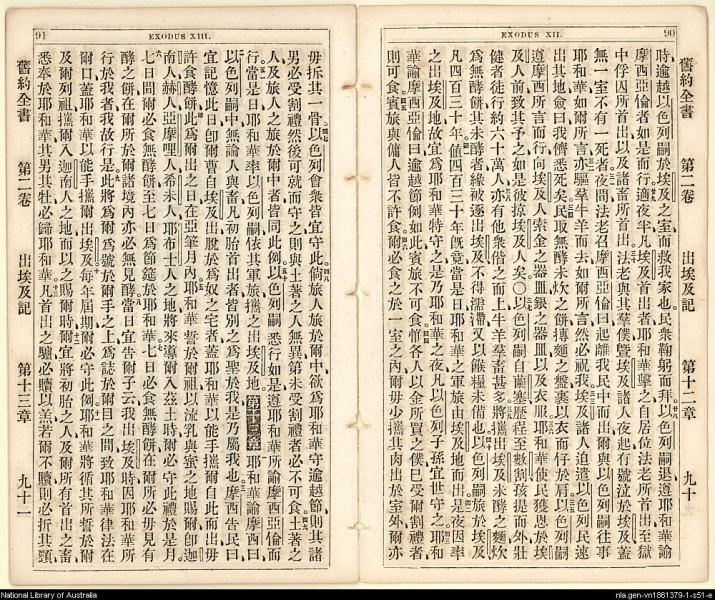 EXODUS XII. 90
舊約全書 第二卷 出埃及記 第十二章 九十
時逾越以色列嗣於埃及之室而救我家也民衆鞠躬而拜以色列嗣退遵耶和華諭
摩西亞倫者如是而行適夜半凡埃及首出者耶和華擊之自居位法老所首出至獄
中俘囚所首出以及諸畜所首出法老與其羣僕曁埃及諸人夜起有號泣於埃及蓋
無一室不有一死者夜間法老召摩西亞倫曰起離我民中由爾與以色列嗣往事
耶和華如爾所言亦驅羣牛羊而去如爾所言然必祝我埃及諸人迫遣以色列民速
出其地僉曰我儕悉死矣民取無酵未炊之餅摶麵之盤裹以衣而任於肩以色列嗣
遵摩西所言而行向埃及人索金之器皿銀之器皿以及衣服耶和華使民獲恩於埃
及人前致其予之如是彼掠埃及人矣○以色列嗣自蘭塞歷程至數割孩提而外壯
健者徒行約六十萬人亦有他衆偕之而上牛羊羣畜甚多將攜出埃及未酵之麵炊
爲無酵餅其未酵者緣被逐出埃及不得濡滯又以餱糧未備也以色列嗣旅於埃及
凡四百三十年値四百三十年旣竟當是日耶和華之軍旅由埃及地而出是夜因率
之出埃及地故宜爲耶和華特守之是乃耶和華之夜凡以色列子孫宜世守之耶和
華諭摩西亞倫曰逾越節例如此賓旅不可食惟各人以金所買之僕已受割禮者
則可食賓旅與傭人皆不許食爾必食之於一室之內爾毋少攜其肉出於室外爾亦
91 EXODUS XIII.
毋拆其一骨以色列會衆皆宜守此倘旅人旅於爾中欲爲耶和華守逾越節則其諸
男必受割禮然後可就而守之則與土著之人無異第未受割禮者必不可食土著之
人及旅人之旅於爾中者皆同此例以色列嗣悉行如是遵耶和華所諭摩西亞倫而
行當是日耶和華率以色列嗣依其軍旅攜之出埃及地第十三章耶和華諭摩西曰
以色列嗣中無論人與畜凡初胎首出者皆別之爲聖於我是乃屬我也摩西告民曰
宜記憶此日卽爾曹自埃及出脫於爲奴之宅者蓋耶和華以能手攜爾自此而出毋
許食酵餅此爲爾出之日在亞筆月內耶和華誓於爾祖以流乳與蜜之地賜爾卽迦
南人赫人亞摩哩人希未人耶布士人之地將來導爾入茲土時爾必守此禮於是月
七日間爾必食無酵餅至七日爲節筵於耶和華七日必食無酵餅在爾所必毋見有
酵之餅在爾所於爾諸境內亦必無見酵當日宜告爾子云我出埃及時因耶和華所
行於我者我故行是此將爲爾爲號於爾手之上爲誌於爾目之間致耶和華律法在
爾口蓋耶和華以能手攜爾出埃及每年屆期爾必守此例耶和華將循其所誓於爾
及爾列祖攜爾入迦南人之地而以之賜爾時爾宜將初胎之人及爾所有首出之畜
悉奉於耶和華其男其牡必歸耶和華凡首出之驢必贖以羔若爾不贖則必折其頸
舊約全書 第二卷 出埃及記 第十三章 九十一
National Library of Australia
nla.gen-vn1861379-1-s51-e